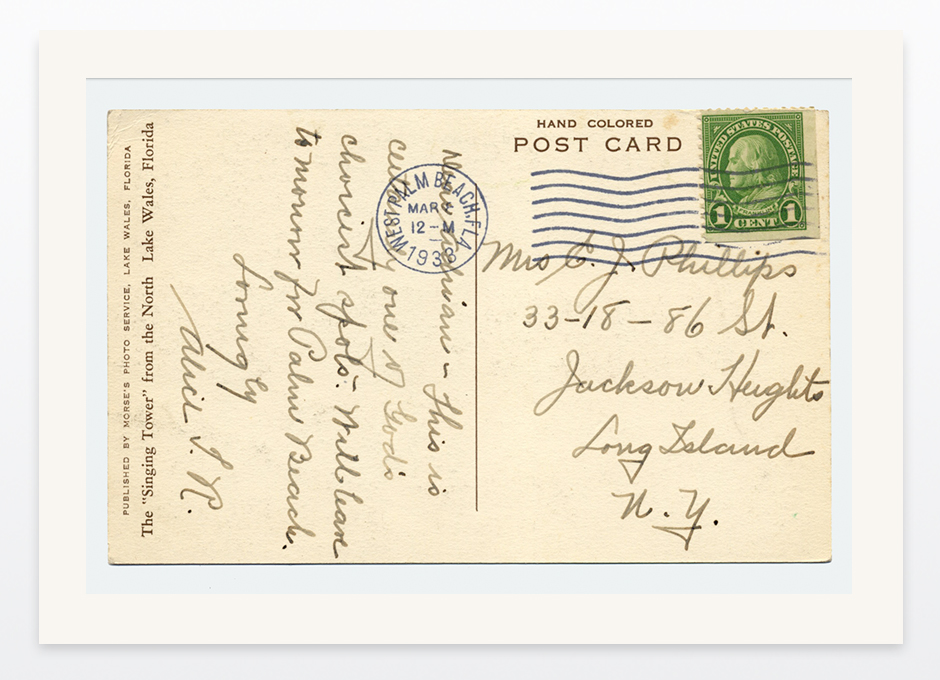 PUBLISHED BY MORSE'S PHOTO SERVICE, LAKE WALES, FLORIDA
The "Singing Tower" from the North Lake Wales, Florida
This is
one of God's
choicest spots. Will leave
tomorrow for Palm Beach.
Lovingly
Alice
HAND COLORED
POST CARD
UNITED STATES POSTAGE
FRANKLIN
1 CENT 1
WEST PALM BEACH, FLA
MAR
12-M
1933
Mrs C. J. Phillips
33-18-86 St.
Jackson Heights
Long Island
N.Y.